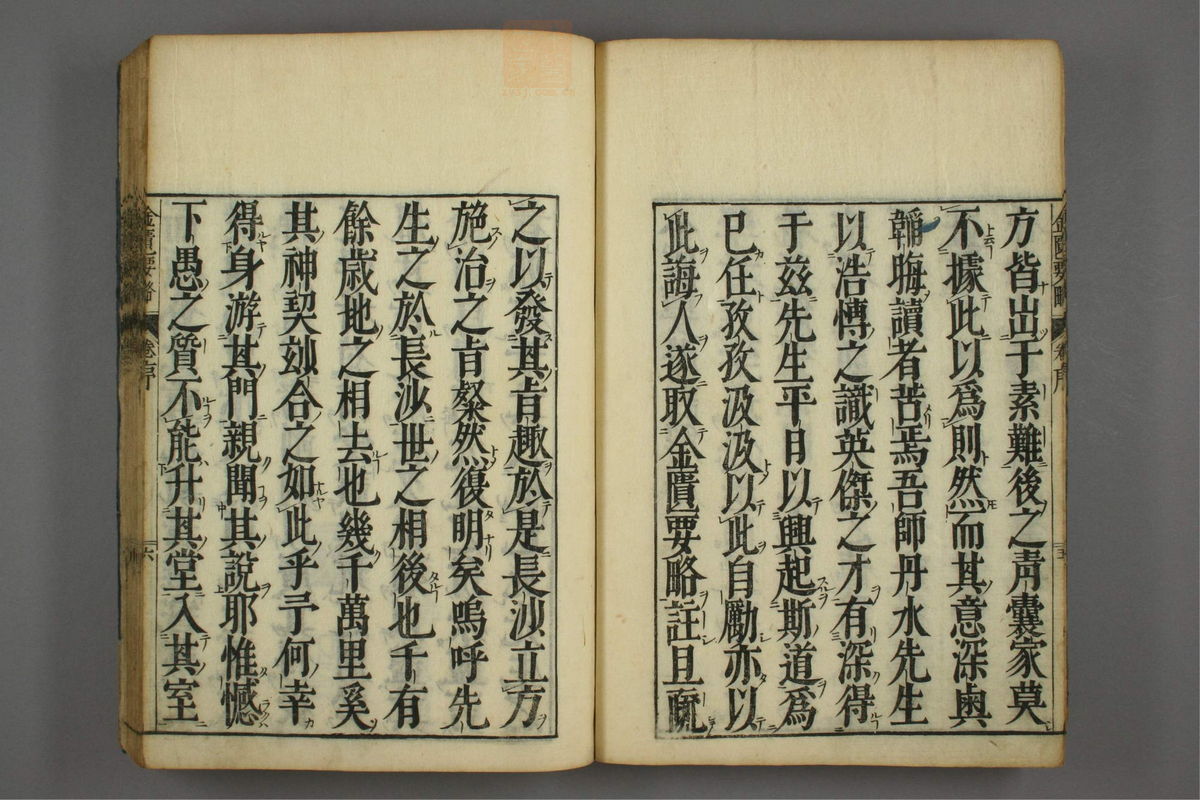 方皆出于素難後之靑囊家莫
不據此以爲則然而其意深奧
韞晦讀者苦焉吾師丹水先生
以浩博之識英傑之才有深得
于玆先生平日以興起斯道爲
已任孜孜汲汲以此自勵亦以
此誨人遂取金匱要略註且疏
之以發其旨趣於是長沙立方
施治之旨粲然復明矣嗚呼先
生之於長沙世之相後也千有
餘歲地之相去也幾千萬里奚
其神契玅合之如此乎予何幸
得身游其門親聞其說耶惟憾
下愚之質不能升其堂入其室
金匱要略
卷序
六